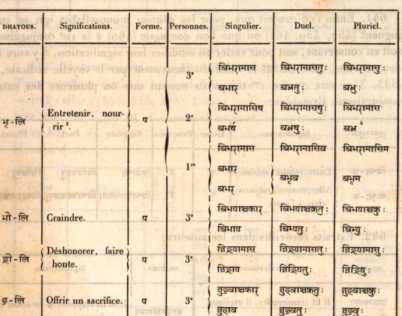 DHATOUS. Significations. Forme. Personnes. Singulier. Duel. Pluriel.
3ᵉ बिभरामास बिभरामासतुः बिभरामासुः
बभार बभ्रतुः बभ्रुः
भृ-लि Entretenir, nour-
rir². प 2ᵉ बिभरामासिथ बिभरामासथुः बिभरामास
बभर्थ बभ्रथुः बभ्र
1ʳᵉ बिभरामास बिभरामासिव बिभरामासिम
बभार बभृव बभृम
बभर
भी-लि Craindre. प 3ᵉ बिभयाञ्चकार बिभयाञ्चक्रतुः बिभयाञ्चक्रुः
बिभाय बिभ्यतुः बिभ्युः
ह्री-लि Déshonorer, faire
honte. प 3ᵉ जिह्रयामास जिह्रयामासतुः जिह्रयामासुः
जिह्राय जिह्रियतुः जिह्रियुः
हु-लि Offrir un sacrifice. प 3ᵉ जुहवाञ्चकार जुहवाञ्चक्रतुः जुहवाञ्चक्रुः
जुहाव जुहुवतुः जुहुवुः